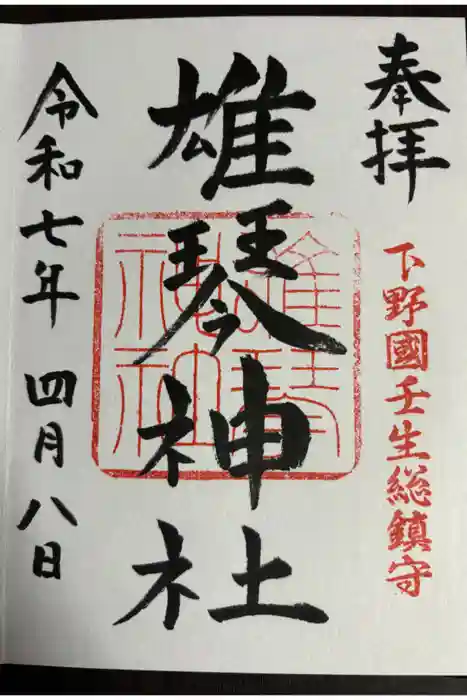 奉拝
下野國壬生総鎮守
雄琴神社
雄琴神社
令和七年 四月八日